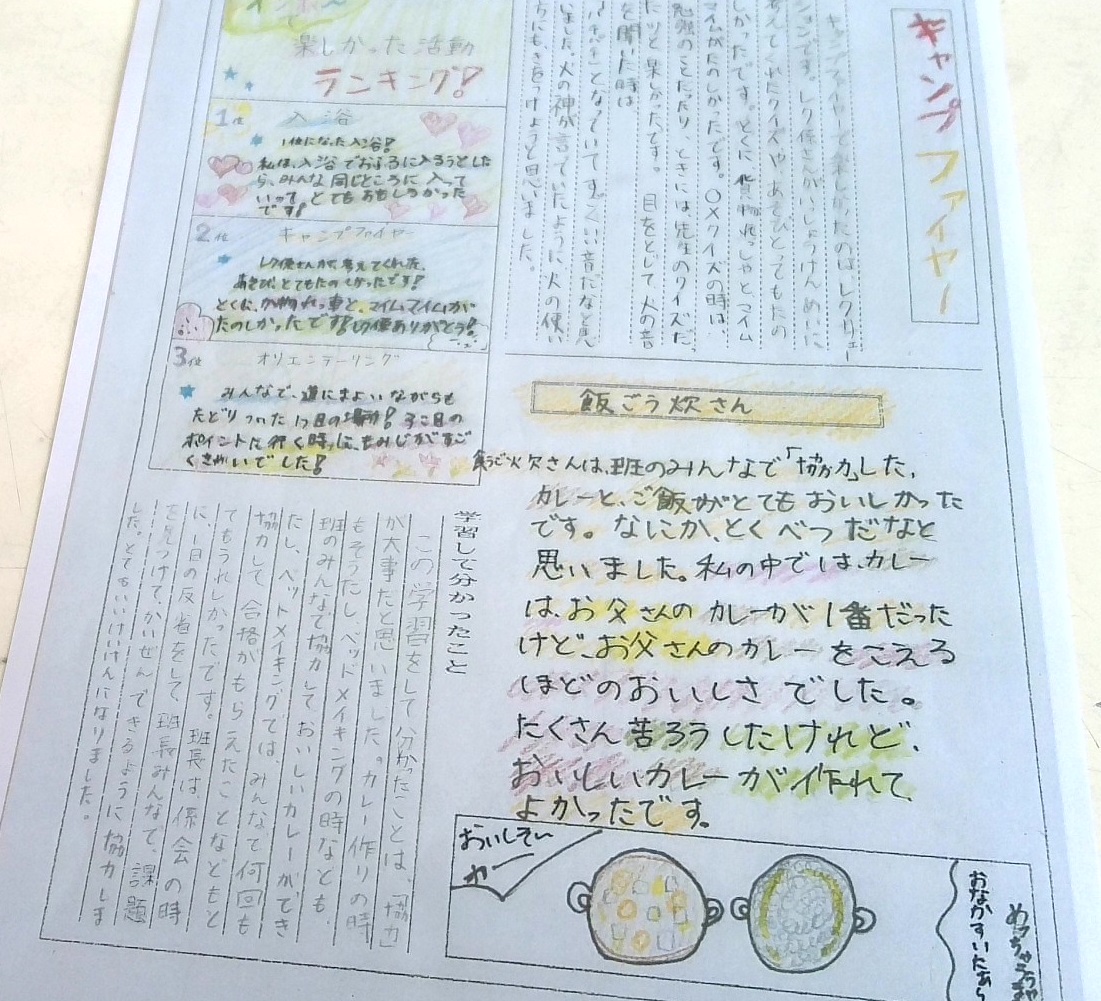 キャンプファイヤー
キャンプファイヤーで楽しかったのは、レクリェー
ションです。レク係さんがいっしょうけんめいに
考えてくれたクイズや、あそびとってもたの
しかったです。とくに貨物れっしゃとマイム
マイムがたのしかったです。○×クイズの時は、
勉強のことだったり、ときには、先生のクイズだ
を聞いた時は
いました。火の神が言っていたように火の使い
ちにも、きをつけようと思いました。
楽しかった活動
ランキング!
1位 入浴
1位になった入浴!
私は、入浴でおふろに入ろうとした
ら、みんな同じところに入って
いって、とてもおもしろかった
です!
2位 キャンプファイヤー
レク係さんが、考えてくれた、
あそび、とてもたのしかったです!
とくに、か物れっ車と、マイムマイムが
たのしかったです!レク係ありがとう!
3位 オリエンテーリング
みんなで、道にまよいながらも
たどりついた1つ目の場所!3こ目の
ポイントに行く時に、もみじがすご
くきれいでした!
飯ごう炊さん
飯ごう炊さんは、班のみんなで「協力」した、
カレーと、ご飯がとてもおいしかった
です。なにか、とくべつだなと
思いました。私の中では、カレー
は、お父さんのカレーが1番だった
けど、お父さんのカレーをこえる
ほどのおいしさでした。
たくさん苦ろうしたけれど、
おいしいカレーが作れて、
よかったです。
学習して分かったこと
この学習をして分かったことは、「協力」
が大事だと思いました。カレー作りの時
もそうだし、ベッドメイキングの時なども、
班のみんなで協力しておいしいカレーができ
たし、ベットメイキングでは、みんなで何回も
協力して、合格がもらえたことなどもと
てもうれしかったです。班長は、係会の時
に、1日の反省をして、班長みんなで、課題
を見つけて、かいぜんできるように協力しま
した。とてもいいけいけんになりました。
おいしそー
おなかすいたあら